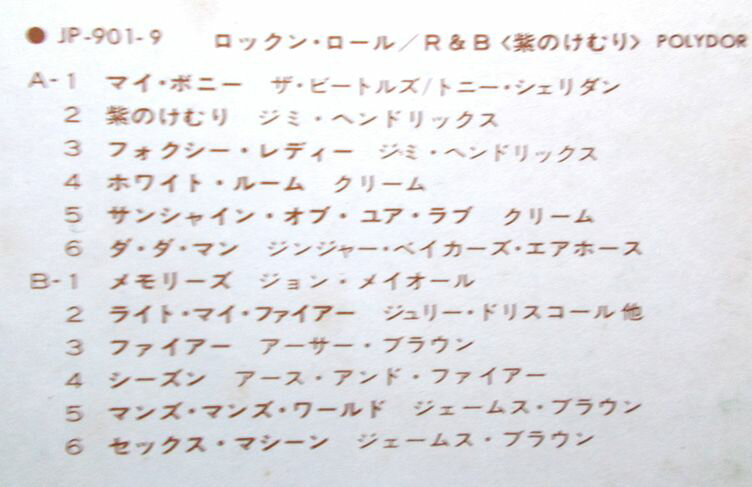 ● JP-901-9 ロックン・ロール／R&B〈紫のけむり〉 POLYDOR
A-1 マイ・ボニー ザ・ビートルズ/トニー・シェリダン
2 紫のけむり ジミ・ヘンドリックス
3 フォクシー・レディー ジミ・ヘンドリックス
4 ホワイト・ルーム クリーム
5 サンシャイン・オブ・ユア・ラブ クリーム
6 ダ・ダ・マン ジンジャー・ベイカーズ・エアホース
B-1 メモリーズ ジョン・メイオール
2 ライト・マイ・ファイアー ジュリー・ドリスコール他
3 ファイアー アーサー・ブラウン
4 シーズン アース・アンド・ファイアー
5 マンズ・マンズ・ワールド ジェームス・ブラウン
6 セックス・マシーン ジェームス・ブラウン